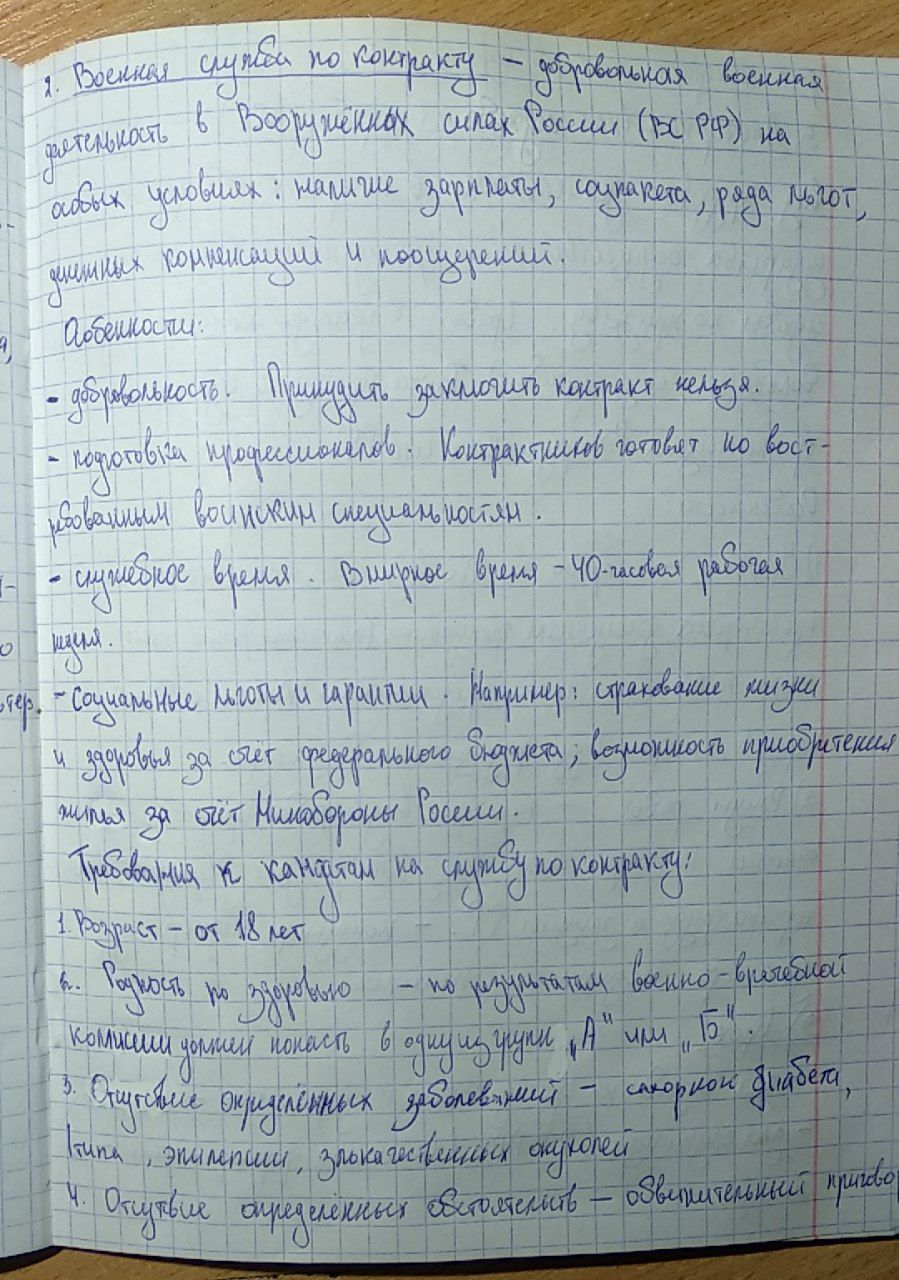 2. Военная служба по контракту – добровольная военная
деятельность в Вооружённых силах России (ВС РФ) на
особых условиях: наличие зарплаты, соцпакета, ряда льгот,
денежных компенсаций и поощрений.
Особенности:
- добровольность. Принудить заключить контракт нельзя.
- подготовка профессионалов. Контрактников готовят по вост-
ребованным воинским специальностям.
- служебное время. В мирное время – 40-часовая рабочая
неделя.
- Социальные льготы и гарантии. Например: страхование жизни
и здоровья за счёт федерального бюджета; возможность приобретения
жилья за счёт Минобороны России.
Требования к кандитам на службу по контракту:
1. Возраст – от 18 лет
2. Годность по здоровью – по результатам военно-врачебной
комиссии должен попасть в одну из групп „А" или „Б".
3. Отсутствие определённых заболеваний – сахорной диабета,
1 типа, эпилепсии, злокачественных опухолей
4. Отсутствие определённых обстоятельств – обвинительный приговор